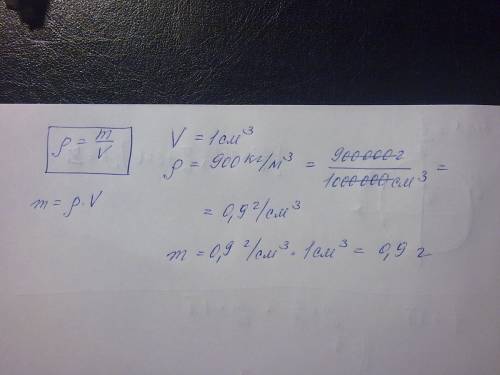 ρ = m/V
m = ρ·V
V = 1 см³
ρ = 900 кг/м³ = 900000 г/1000000 см³ =
= 0,9 г/см³
m = 0,9 г/см³ · 1 см³ = 0,9 г